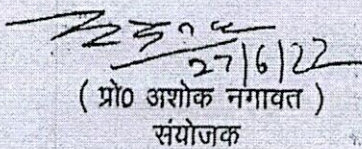 27/6/22
( प्रो0 अशोक नगावत )
संयोजक